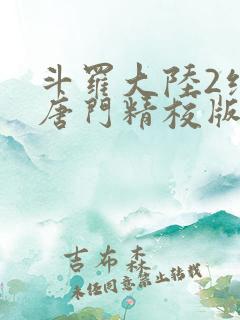 斗羅大陸2
唐門精校版
吉布森
未经同意禁止转载